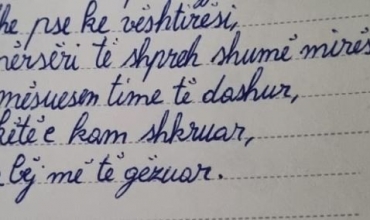 he pse ke vështirësi,
përsëri të shpreh shumë mirës
mësuesen time të dashur,
këtë e kam shkruar,
bëj më të gëzuar.